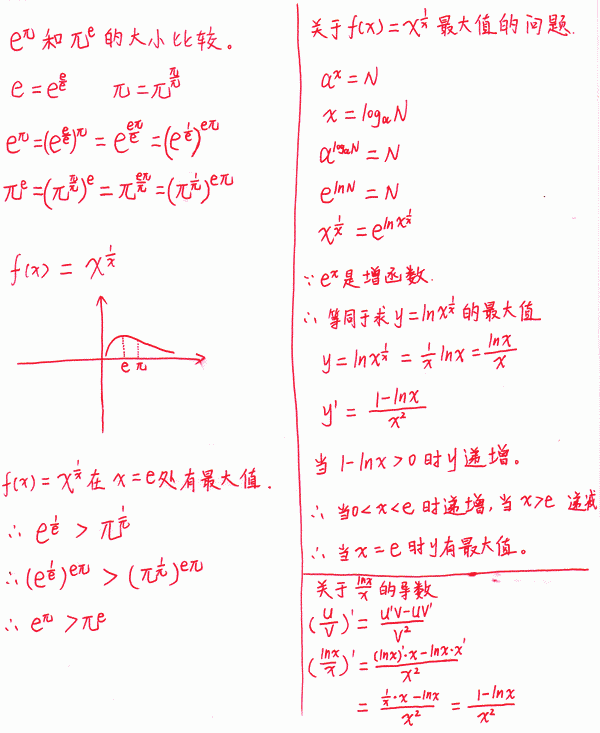 e^π 和 π^e 的大小比较。
e = e^(e/e)  π = π^(π/π)
e^π = (e^(e/e))^π = e^(eπ/e) = (e^(1/e))^(eπ)
π^e = (π^(π/π))^e = π^(eπ/π) = (π^(1/π))^(eπ)
f(x) = x^(1/x)
e π
f(x) = x^(1/x) 在 x = e 处有最大值.
∴ e^(1/e) > π^(1/π)
∴ (e^(1/e))^(eπ) > (π^(1/π))^(eπ)
∴ e^π > π^e
关于 f(x) = x^(1/x) 最大值的问题.
a^x = N
x = log_a N
a^(log_a N) = N
e^(lnN) = N
x^(1/x) = e^(ln x^(1/x))
∵ e^x 是增函数.
∴ 等同于求 y = ln x^(1/x) 的最大值
y = ln x^(1/x) = 1/x ln x = lnx/x
y' = (1-lnx)/x²
当 1-lnx > 0 时 y 递增。
∴ 当 0 < x < e 时递增, 当 x > e 递减
∴ 当 x = e 时 y 有最大值。
关于 lnx/x 的导数
(u/v)' = (u'v-uv')/v²
(lnx/x)' = ((lnx)'·x-lnx·x')/x²
= (1/x·x-lnx)/x² = (1-lnx)/x²